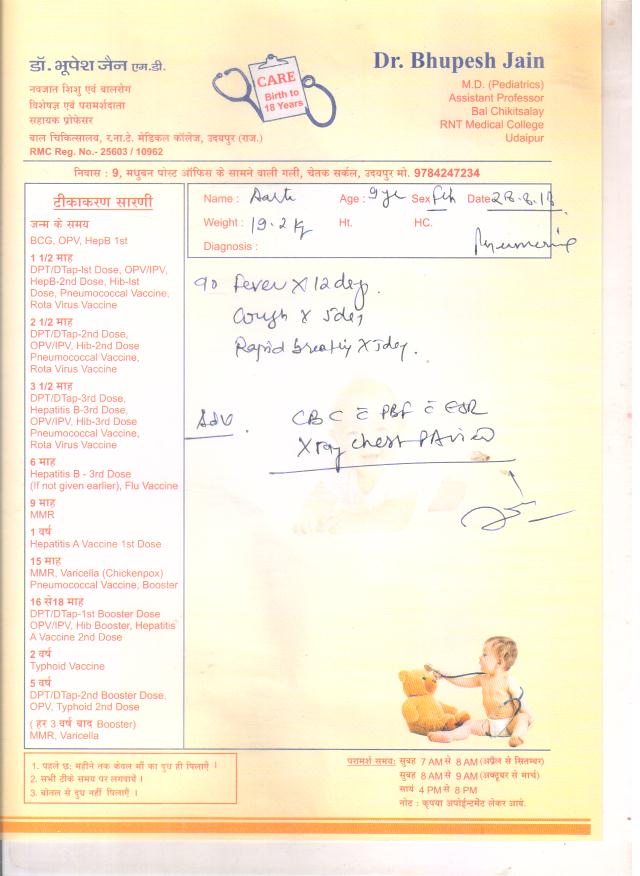 डॉ. भूपेश जैन एम.डी.
नवजात शिशु एवं बालरोग
विशेषज्ञ एवं परामर्शदाता
सहायक प्रोफेसर
बाल चिकित्सालय, र.ना.टे. मेडिकल कॉलेज, उदयपुर (राज.)
RMC Reg. No.- 25603 / 10962
CARE
Birth to
18 Years
Dr. Bhupesh Jain
M.D. (Pediatrics)
Assistant Professor
Bal Chikitsalay
RNT Medical College
Udaipur
निवास : 9, मधुबन पोस्ट ऑफिस के सामने वाली गली, चेतक सर्कल, उदयपुर मो. 9784247234
टीकाकरण सारणी
जन्म के समय
BCG, OPV, HepB 1st
1 1/2 माह
DPT/DTap-Ist Dose, OPV/IPV,
HepB-2nd Dose, Hib-Ist
Dose, Pneumococcal Vaccine,
Rota Virus Vaccine
2 1/2 माह
DPT/DTap-2nd Dose,
OPV/IPV, Hib-2nd Dose
Pneumococcal Vaccine,
Rota Virus Vaccine
3 1/2 माह
DPT/DTap-3rd Dose,
Hepatitis B-3rd Dose,
OPV/IPV, Hib-3rd Dose
Pneumococcal Vaccine,
Rota Virus Vaccine
6 माह
Hepatitis B - 3rd Dose
(If not given earlier), Flu Vaccine
9 माह
MMR
1 वर्ष
Hepatitis A Vaccine 1st Dose
15 माह
MMR, Varicella (Chickenpox)
Pneumococcal Vaccine, Booster
16 से18 माह
DPT/DTap-1st Booster Dose
OPV/IPV, Hib Booster, Hepatitis
A Vaccine 2nd Dose
2 वर्ष
Typhoid Vaccine
5 वर्ष
DPT/DTap-2nd Booster Dose,
OPV, Typhoid 2nd Dose
( हर 3 वर्ष बाद Booster)
MMR, Varicella
Name : Aarti Age : 9 ye Sex Feh Date 28.8.18
Weight : 19.2 kg Ht. HC.
Diagnosis :
Fever X 12 day.
Cough X 5 day
Rapid breathing X 3 day.
Adv. CBC c̄ PBF c̄ ESR
X ray chest PA view
1. पहले छ: महीने तक केवल माँ का दुध ही पिलाएँ ।
2. सभी टीके समय पर लगवायें ।
3. बोतल से दुध नहीं पिलाएँ ।
परामर्श समय: सुबह 7 AM से 8 AM (अप्रैल से सितम्बर)
सुबह 8 AM से 9 AM (अक्टूबर से मार्च)
सायं 4 PM से 8 PM
नोट : कृपया अपोईन्टमेंट लेकर आयें.